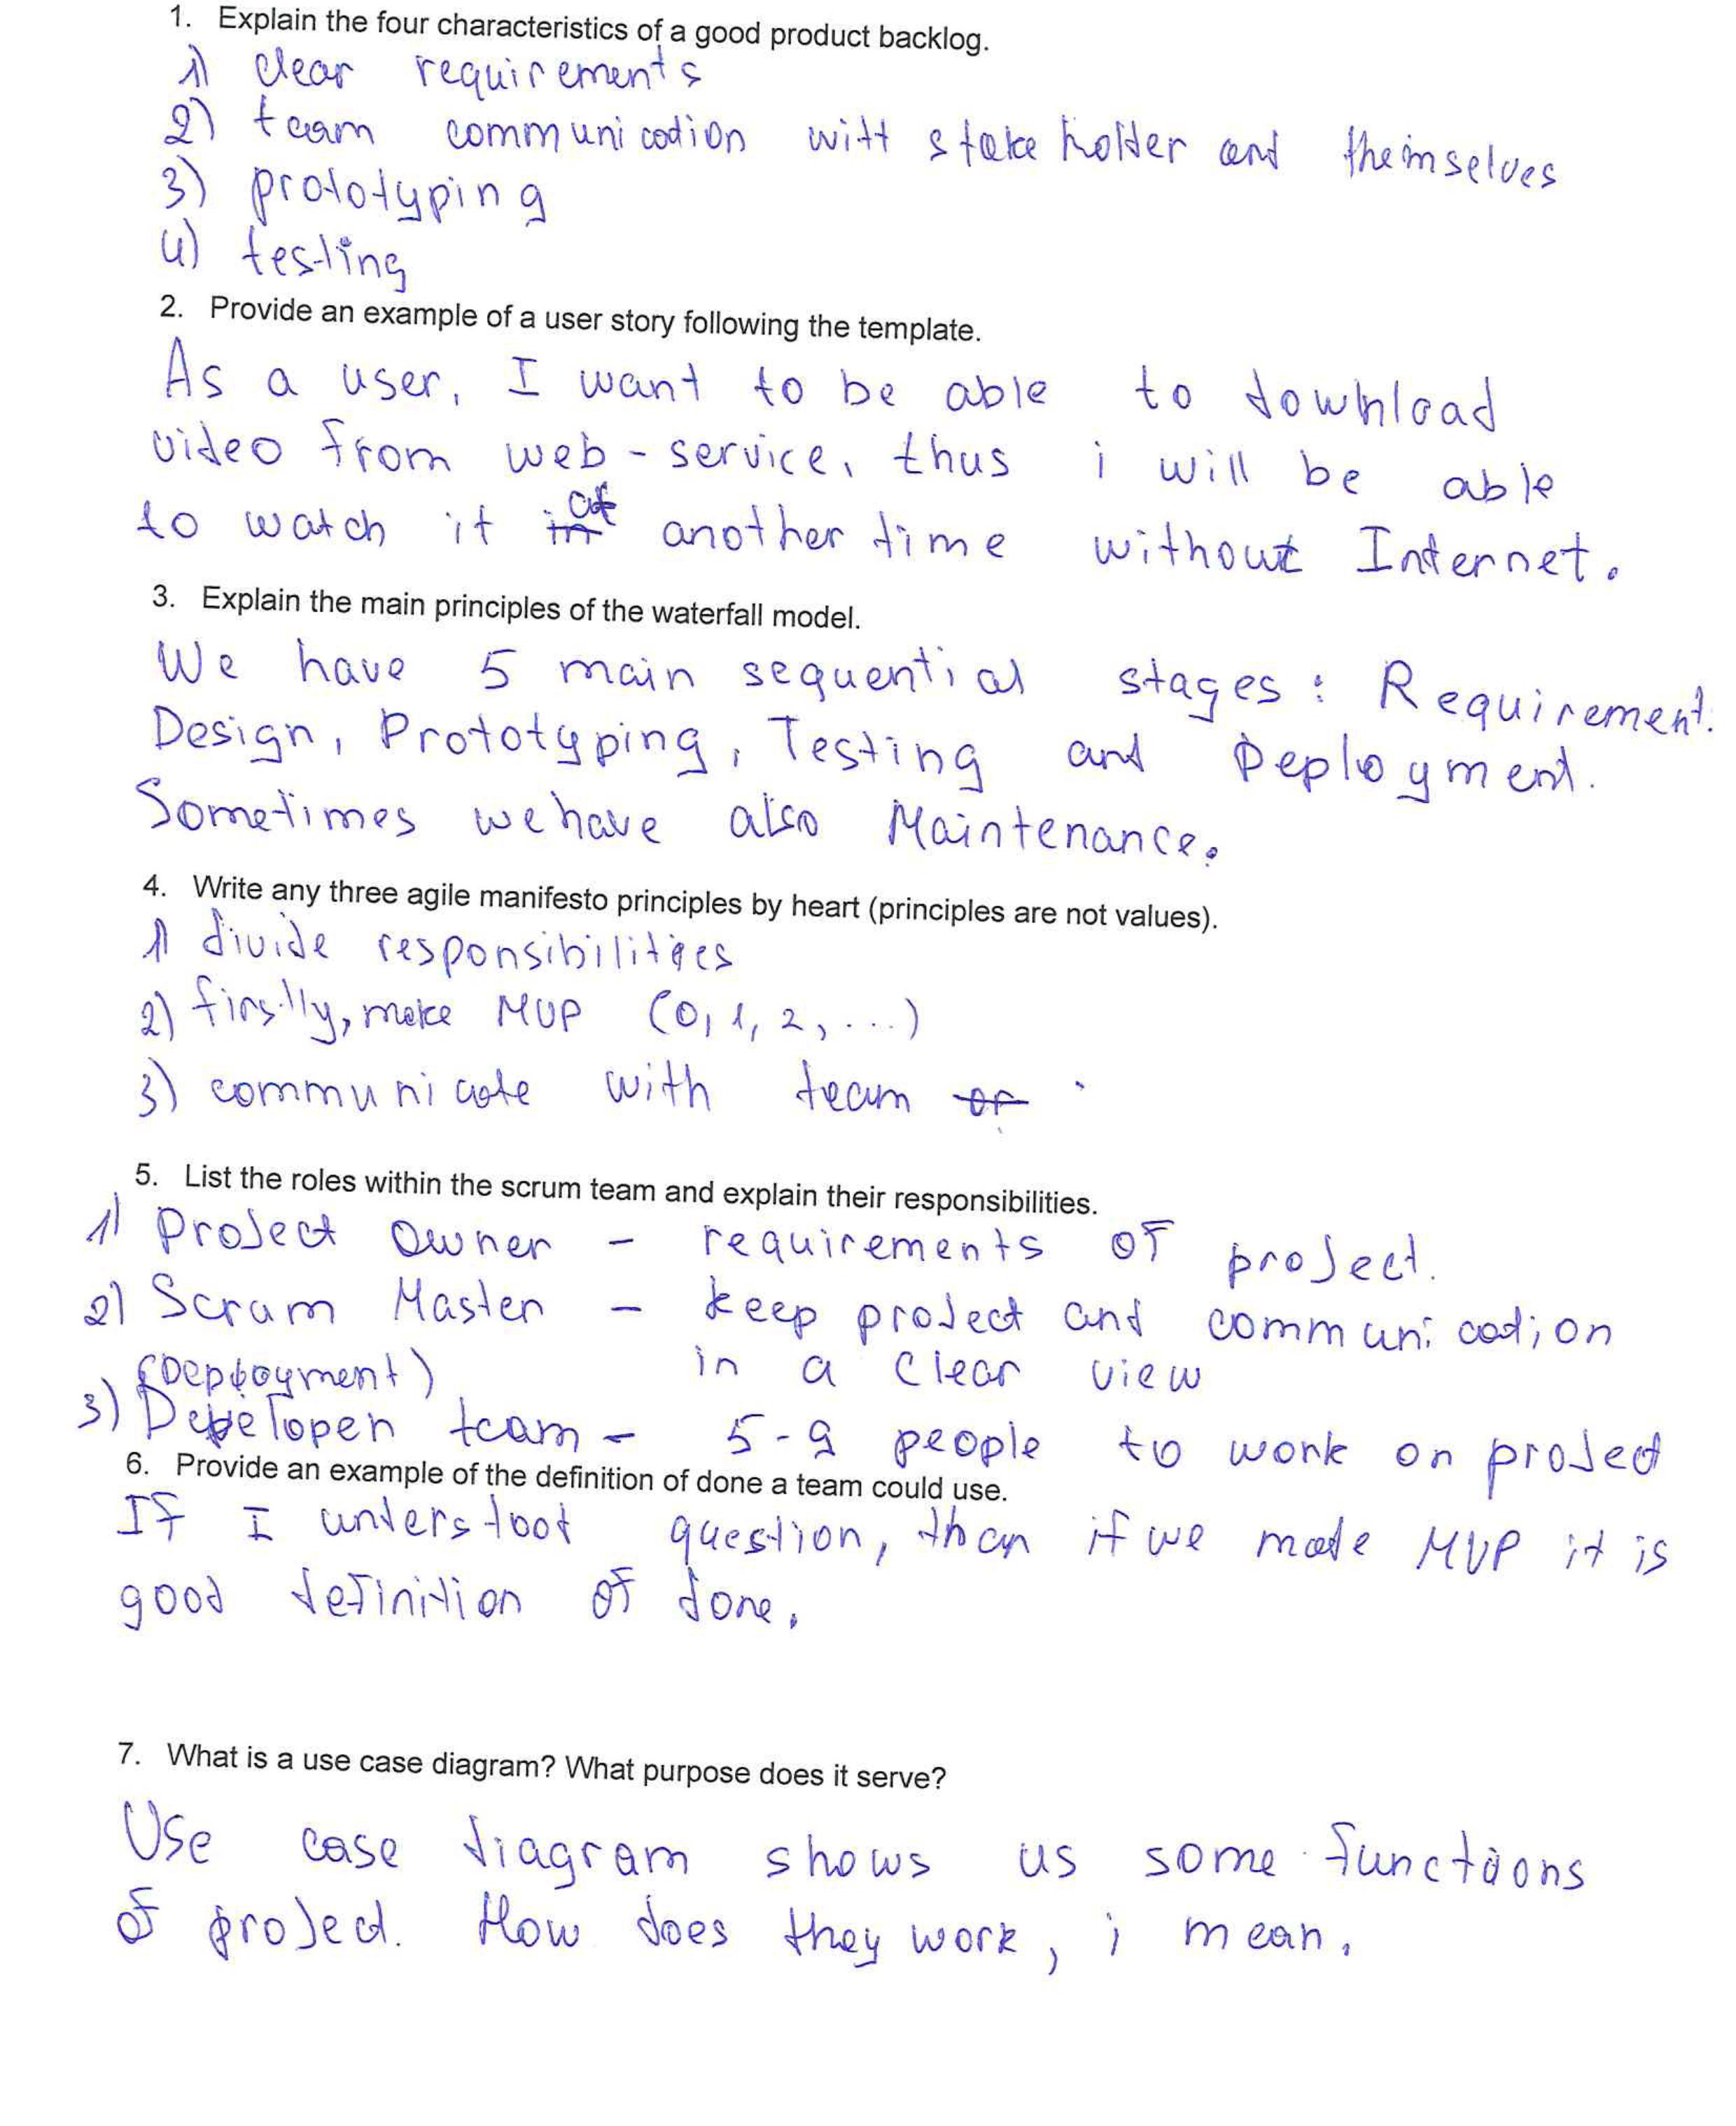 1. Explain the four characteristics of a good product backlog.
1) clear requirements
2) team communication witt stake holder and theimselves
3) prototyping
4) testing
2. Provide an example of a user story following the template.
As a user, I want to be able to download
video from web-service, thus i will be able
to watch it at another time without Internet.
3. Explain the main principles of the waterfall model.
We have 5 main sequential stages: Requirement.
Design, Prototyping, Testing and Deployment.
Sometimes we have also Maintenance.
4. Write any three agile manifesto principles by heart (principles are not values).
1) divide responsibilities
2) firstly, make MVP (0, 1, 2, ...)
3) communicate with team or
5. List the roles within the scrum team and explain their responsibilities.
1) Project Owner - requirements of project.
2) Scrum Master - keep project and communication
in a clear view
(Deployment)
3) Developer team - 5-9 people to work on project
6. Provide an example of the definition of done a team could use.
If I understoot question, than if we made MVP it is
good definition of done.
7. What is a use case diagram? What purpose does it serve?
Use case diagram shows us some functions
of project. How does they work, i mean.